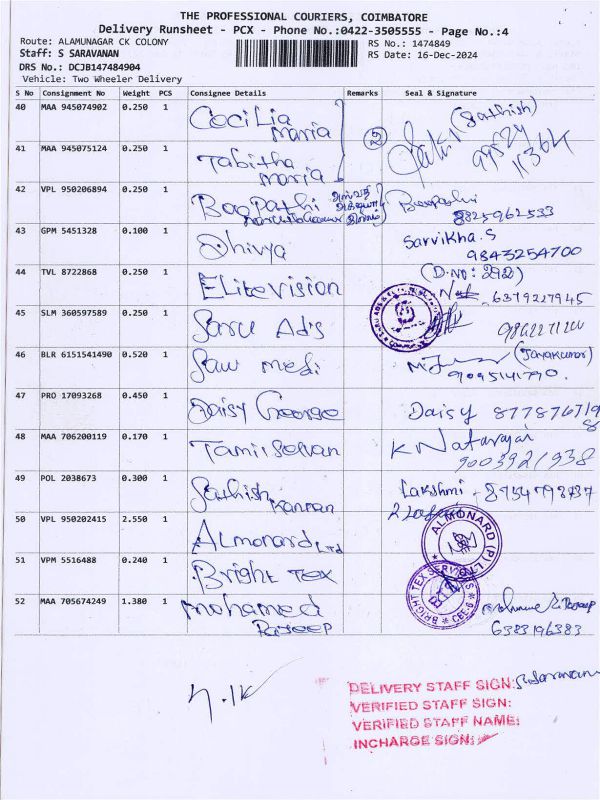 THE PROFESSIONAL COURIERS, COIMBATORE
Delivery Runsheet - PCX - Phone No.:0422-3505555 - Page No.:4
Route: ALAMUNAGAR CK COLONY
RS No.: 1474849
Staff: S SARAVANAN
RS Date: 16-Dec-2024
DRS No.: DCJB147484904
Vehicle: Two Wheeler Delivery
S No Consignment No Weight PCS Consignee Details Remarks Seal & Signature
40 MAA 945074902 0.250 1 Cecilia Maria (Sathish)
41 MAA 945075124 0.250 1 Tabitha Maria
42 VPL 950206894 0.250 1 Boopathi Boopathi 8825962533
43 GPM 5451328 0.100 1 Dhivya Sarvikha.S 9843254700
(D.No: 292)
44 TVL 8722868 0.250 1 Elite vision 6379227945
45 SLM 360597589 0.250 1 Saru Ads
46 BLR 6151541490 0.520 1 (Jayakumar)
47 PRO 17093268 0.450 1 Daisy George Daisy
48 MAA 706200119 0.170 1 Tamilselvan K Natarajan 9003921938
49 POL 2038673 0.300 1 Sathish Kannan Lakshmi - 8754793737
50 VPL 950202415 2.550 1 Almonard Ltd ALMONARD (P) LTD
51 VPM 5516488 0.240 1 Bright Tex BRIGHT TEX SERVICES
52 MAA 705674249 1.380 1 Mohamed Rajeep
6383196383
DELIVERY STAFF SIGN: S. Saravanan
VERIFIED STAFF SIGN:
VERIFIED STAFF NAME:
INCHARGE SIGN: